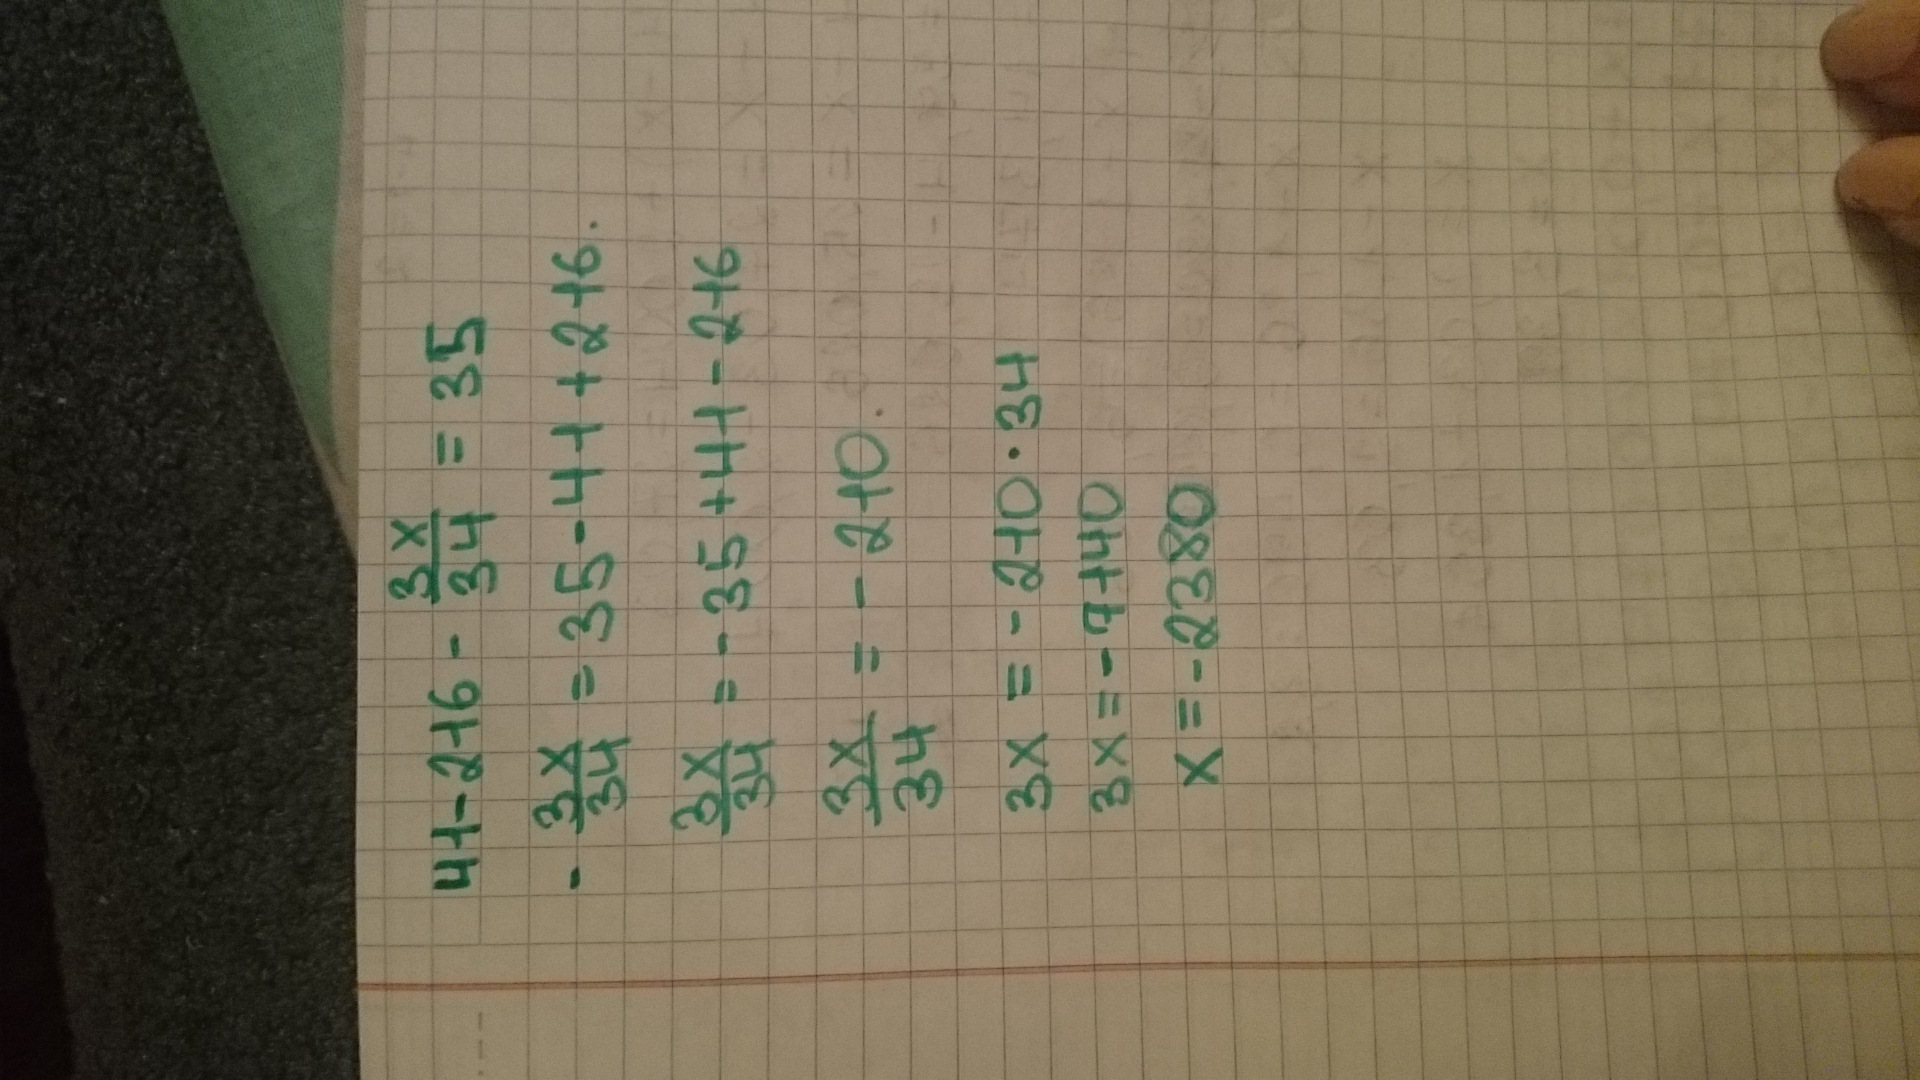 41-216 - 3x/34 = 35
- 3x/34 = 35-41+216.
3x/34 = -35+41-216
3x/34 = -210.
3x = -210·34
3x = -7140
x = -2380